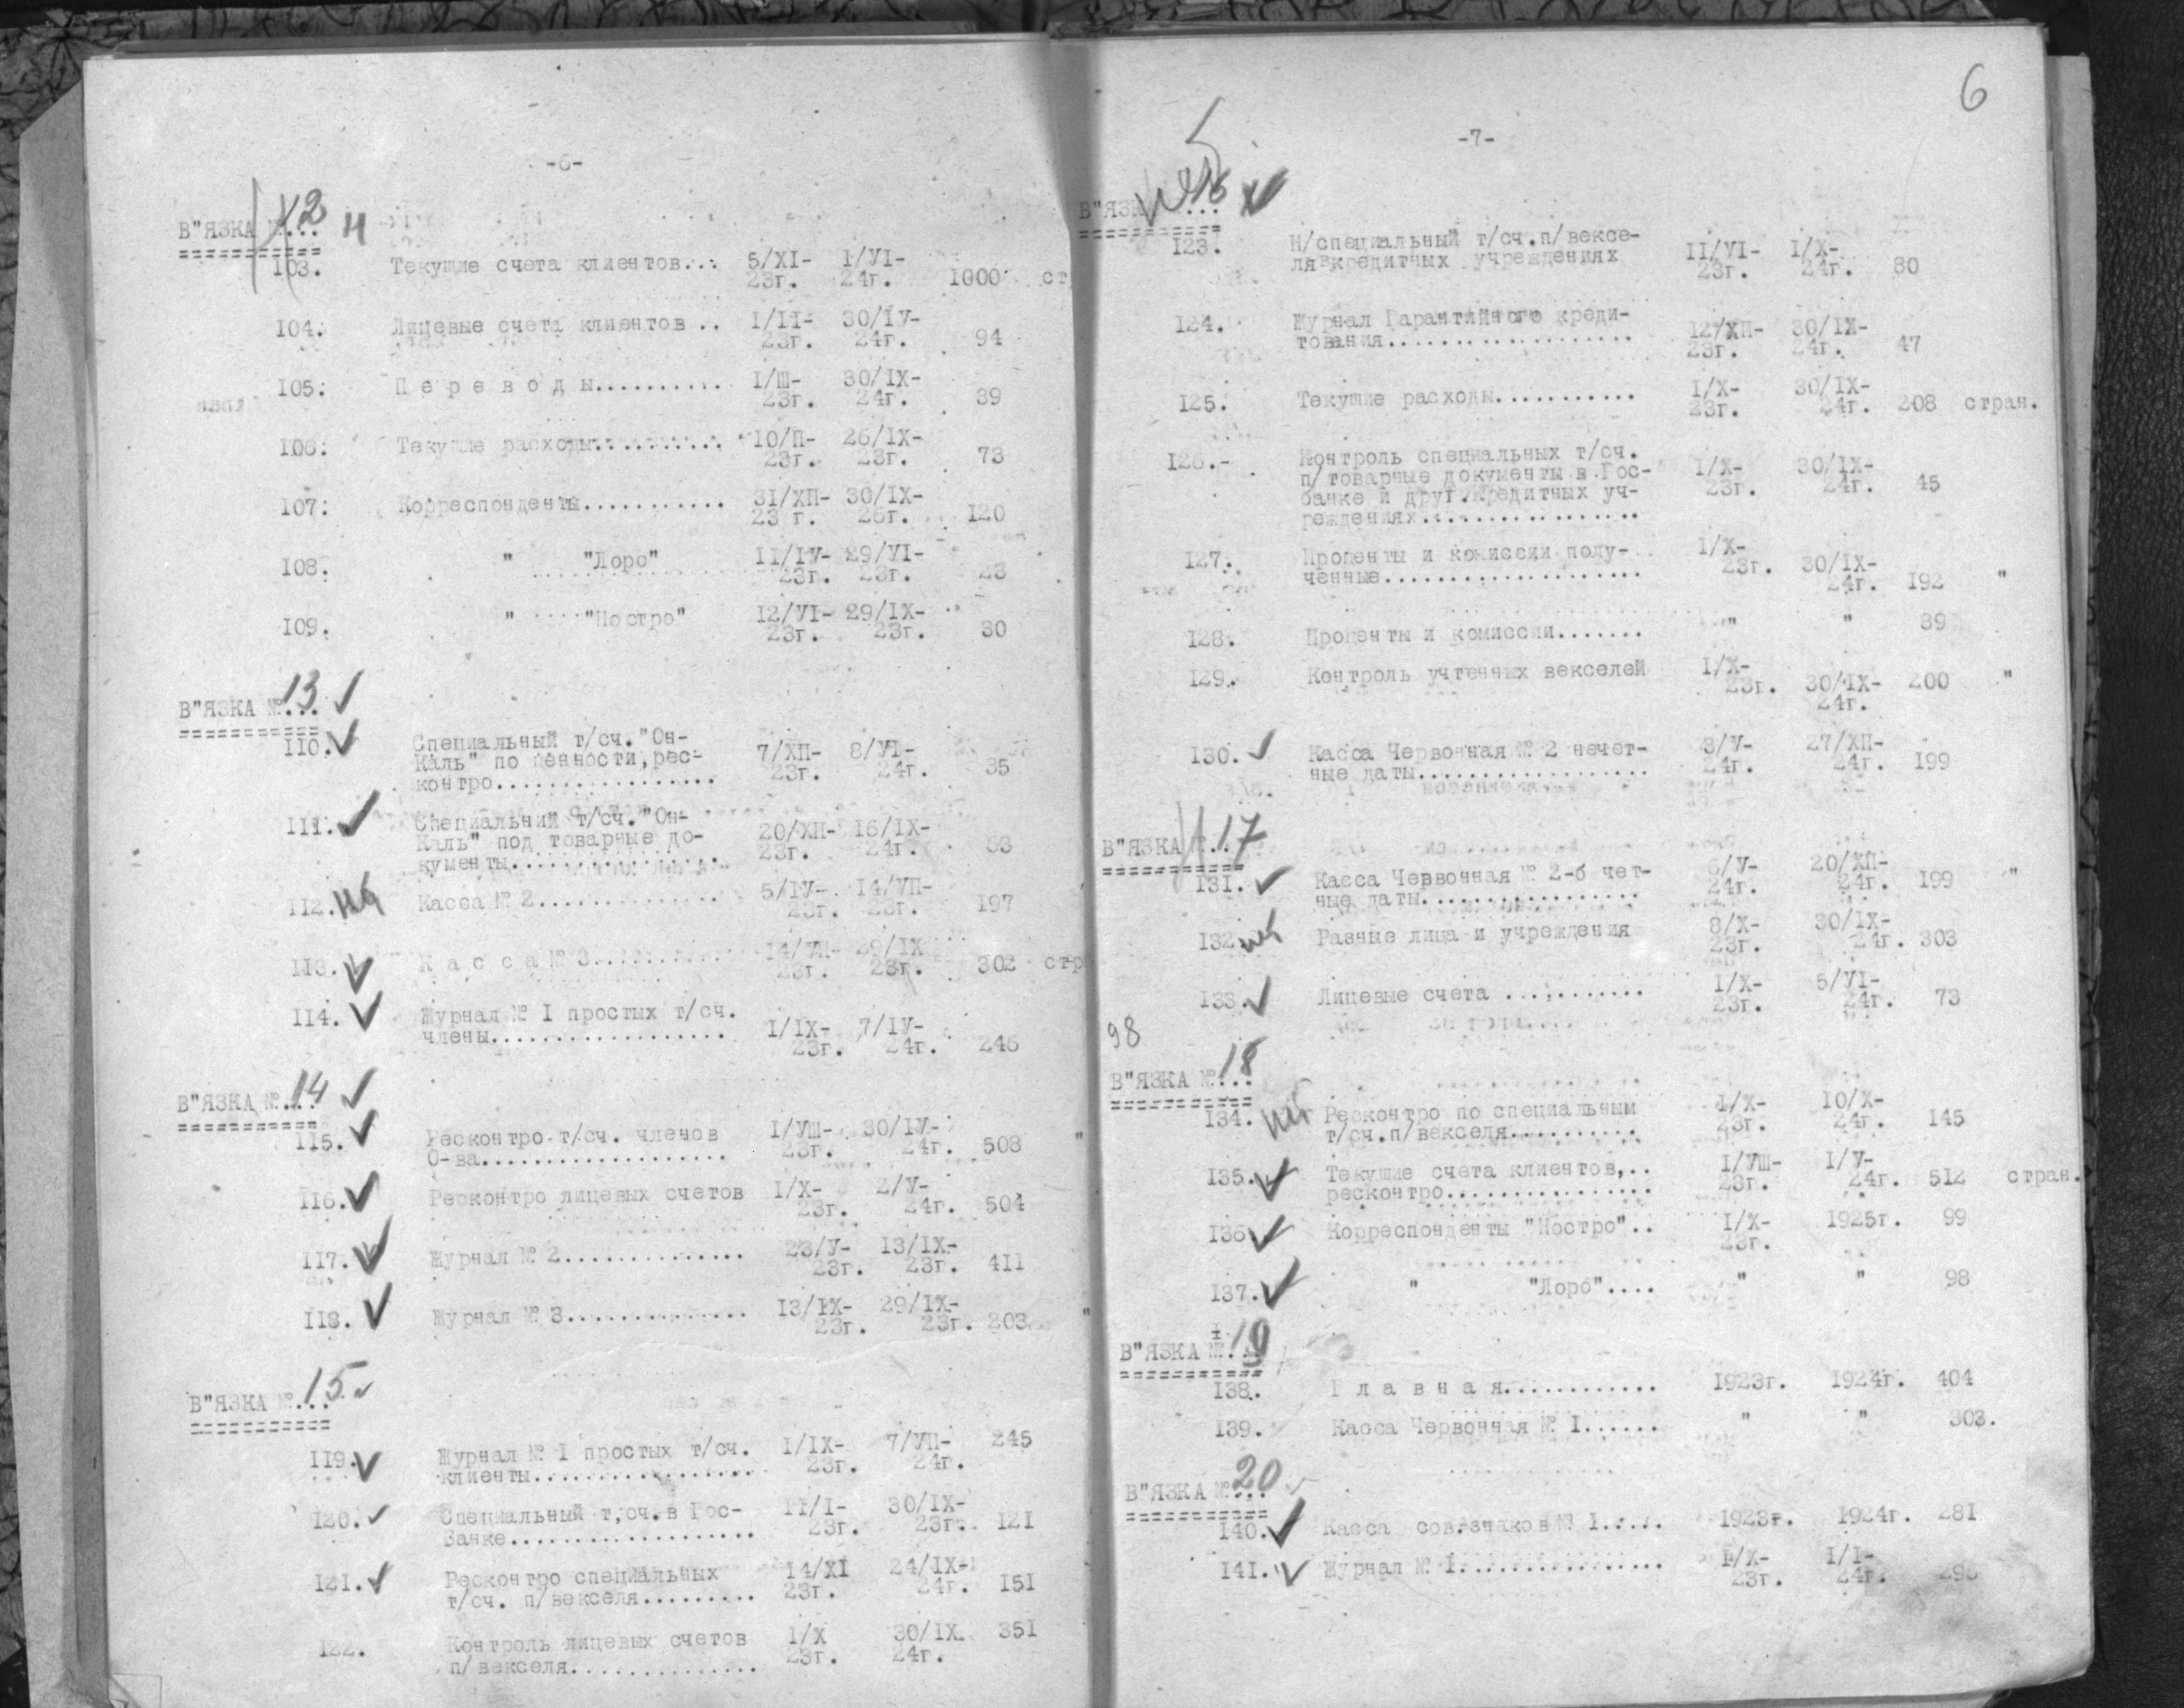 -6-
В"ЯЗКА 12 н
103. Текущие счета клиентов... 5/XI- 1/VI-
23г. 24г. 1000 ст
104. Лицевые счета клиентов .. 1/II- 30/IV-
23г. 24г. 94
105. П е р е в о д ы.......... 1/Ш- 30/IX-
23г. 24г. 39
106. Текущие расходы.......... 10/П- 26/IX-
23г. 23г. 73
107. Корреспонденты........... 31/ХП- 30/IX-
23 г. 26г. 120
108. " "Лоро" 11/IV- 29/VI-
23г. 23г. 23
109. " "Ностро" 12/VI- 29/IX-
23г. 23г. 30
В"ЯЗКА № 13
110. Специальный т/сч."Он-
каль" по ценности,рес- 7/ХП- 8/VI-
контро................. 23г. 24г. 35
111. Специальний т/сч."Он-
каль" под товарные до- 20/ХП- 16/IX-
кументы................ 23г. 24г.
112. Касса № 2.............. 5/IV- 14/УП-
23г. 23г. 197
113. К а с с а № 3........... 14/УП- 29/IX
23г. 23г. 302 стр
114. Журнал № I простых т/сч.
члены.................. 1/IX- 7/IУ-
23г. 24г. 246
В"ЯЗКА № 14
115. Ресконтро т/сч. членов 1/УШ- 30/IУ-
О-ва................... 23г. 24г. 508 "
116. Ресконтро лицевых счетов 1/X- 2/У-
23г. 24г. 504
117. Журнал № 2.............. 23/У- 13/IX-
23г. 23г. 411
118. Журнал № 3.............. 13/IX- 29/IX-
23г. 23г. 203 "
В"ЯЗКА № 15
119. Журнал № I простых т/сч. 1/IX- 7/УП- 245
клиенты................. 23г. 24г.
120. Специальный т,сч.в Гос- 11/I- 30/IX-
Банке................... 23г. 23г. 121
121. Ресконтро специальных 14/XI 24/IX-
т/сч. п/векселя......... 23г. 24г. 151
122. Контроль лицевых счетов 1/X 30/IX 351
п/векселя............... 23г. 24г.
6
5
-7-
В"ЯЗКА №16
123. Н/специальный т/сч.п/вексе-
ля в кредитных учреждениях 11/VI- 1/X-
23г. 24г. 80
124. Журнал Гарантийного креди-
тования................... 12/ХП- 30/IX-
23г. 24г. 47
125. Текущие расходы........... 1/X- 30/IX-
23г. 24г. 208 стран.
126.- Контроль специальных т/сч.
п/товарные документы в Гос- 1/X- 30/IX-
банке и друг.кредитных уч- 23г. 24г. 45
реждениях.................
127. Проценты и комиссии полу- 1/X-
ченные.................... 23г. 30/IX-
24г. 192 "
128. Проценты и комиссии....... " " 89
129. Контроль учтенных векселей 1/X-
23г. 30/IX- 200 "
24г.
130. Касса Червонная № 2 нечет- 3/У- 27/ХП-
ные даты.................. 24г. 24г. 199
В"ЯЗКА 17
131. Касса Червонная № 2-б чет- 6/У- 20/ХП-
ные даты................. 24г. 24г. 199 "
132. Разные лица и учреждения 8/X- 30/IX-
23г. 24г. 303
133. Лицевые счета ........... 1/X- 5/VI-
23г. 24г. 73
98
В"ЯЗКА № 18
134. Ресконтро по специальным 1/X- 10/X-
т/сч.п/векселя.......... 23г. 24г. 145
135. Текущие счета клиентов,.. 1/УШ- 1/У-
ресконтро................ 23г. 24г. 512 стран.
136. Корреспонденты "Ностро".. 1/X- 1925г. 99
23г.
137. " "Лоро".... " " 98
В"ЯЗКА № 19
138. Г л а в н а я............ 1923г. 1924г. 404
139. Касса Червонная № I...... " " 303.
В"ЯЗКА № 20
140. Касса сов.знаков № I..... 1923г. 1924г. 281
141. Журнал № I................ 1/X- 1/I-
23г. 24г.